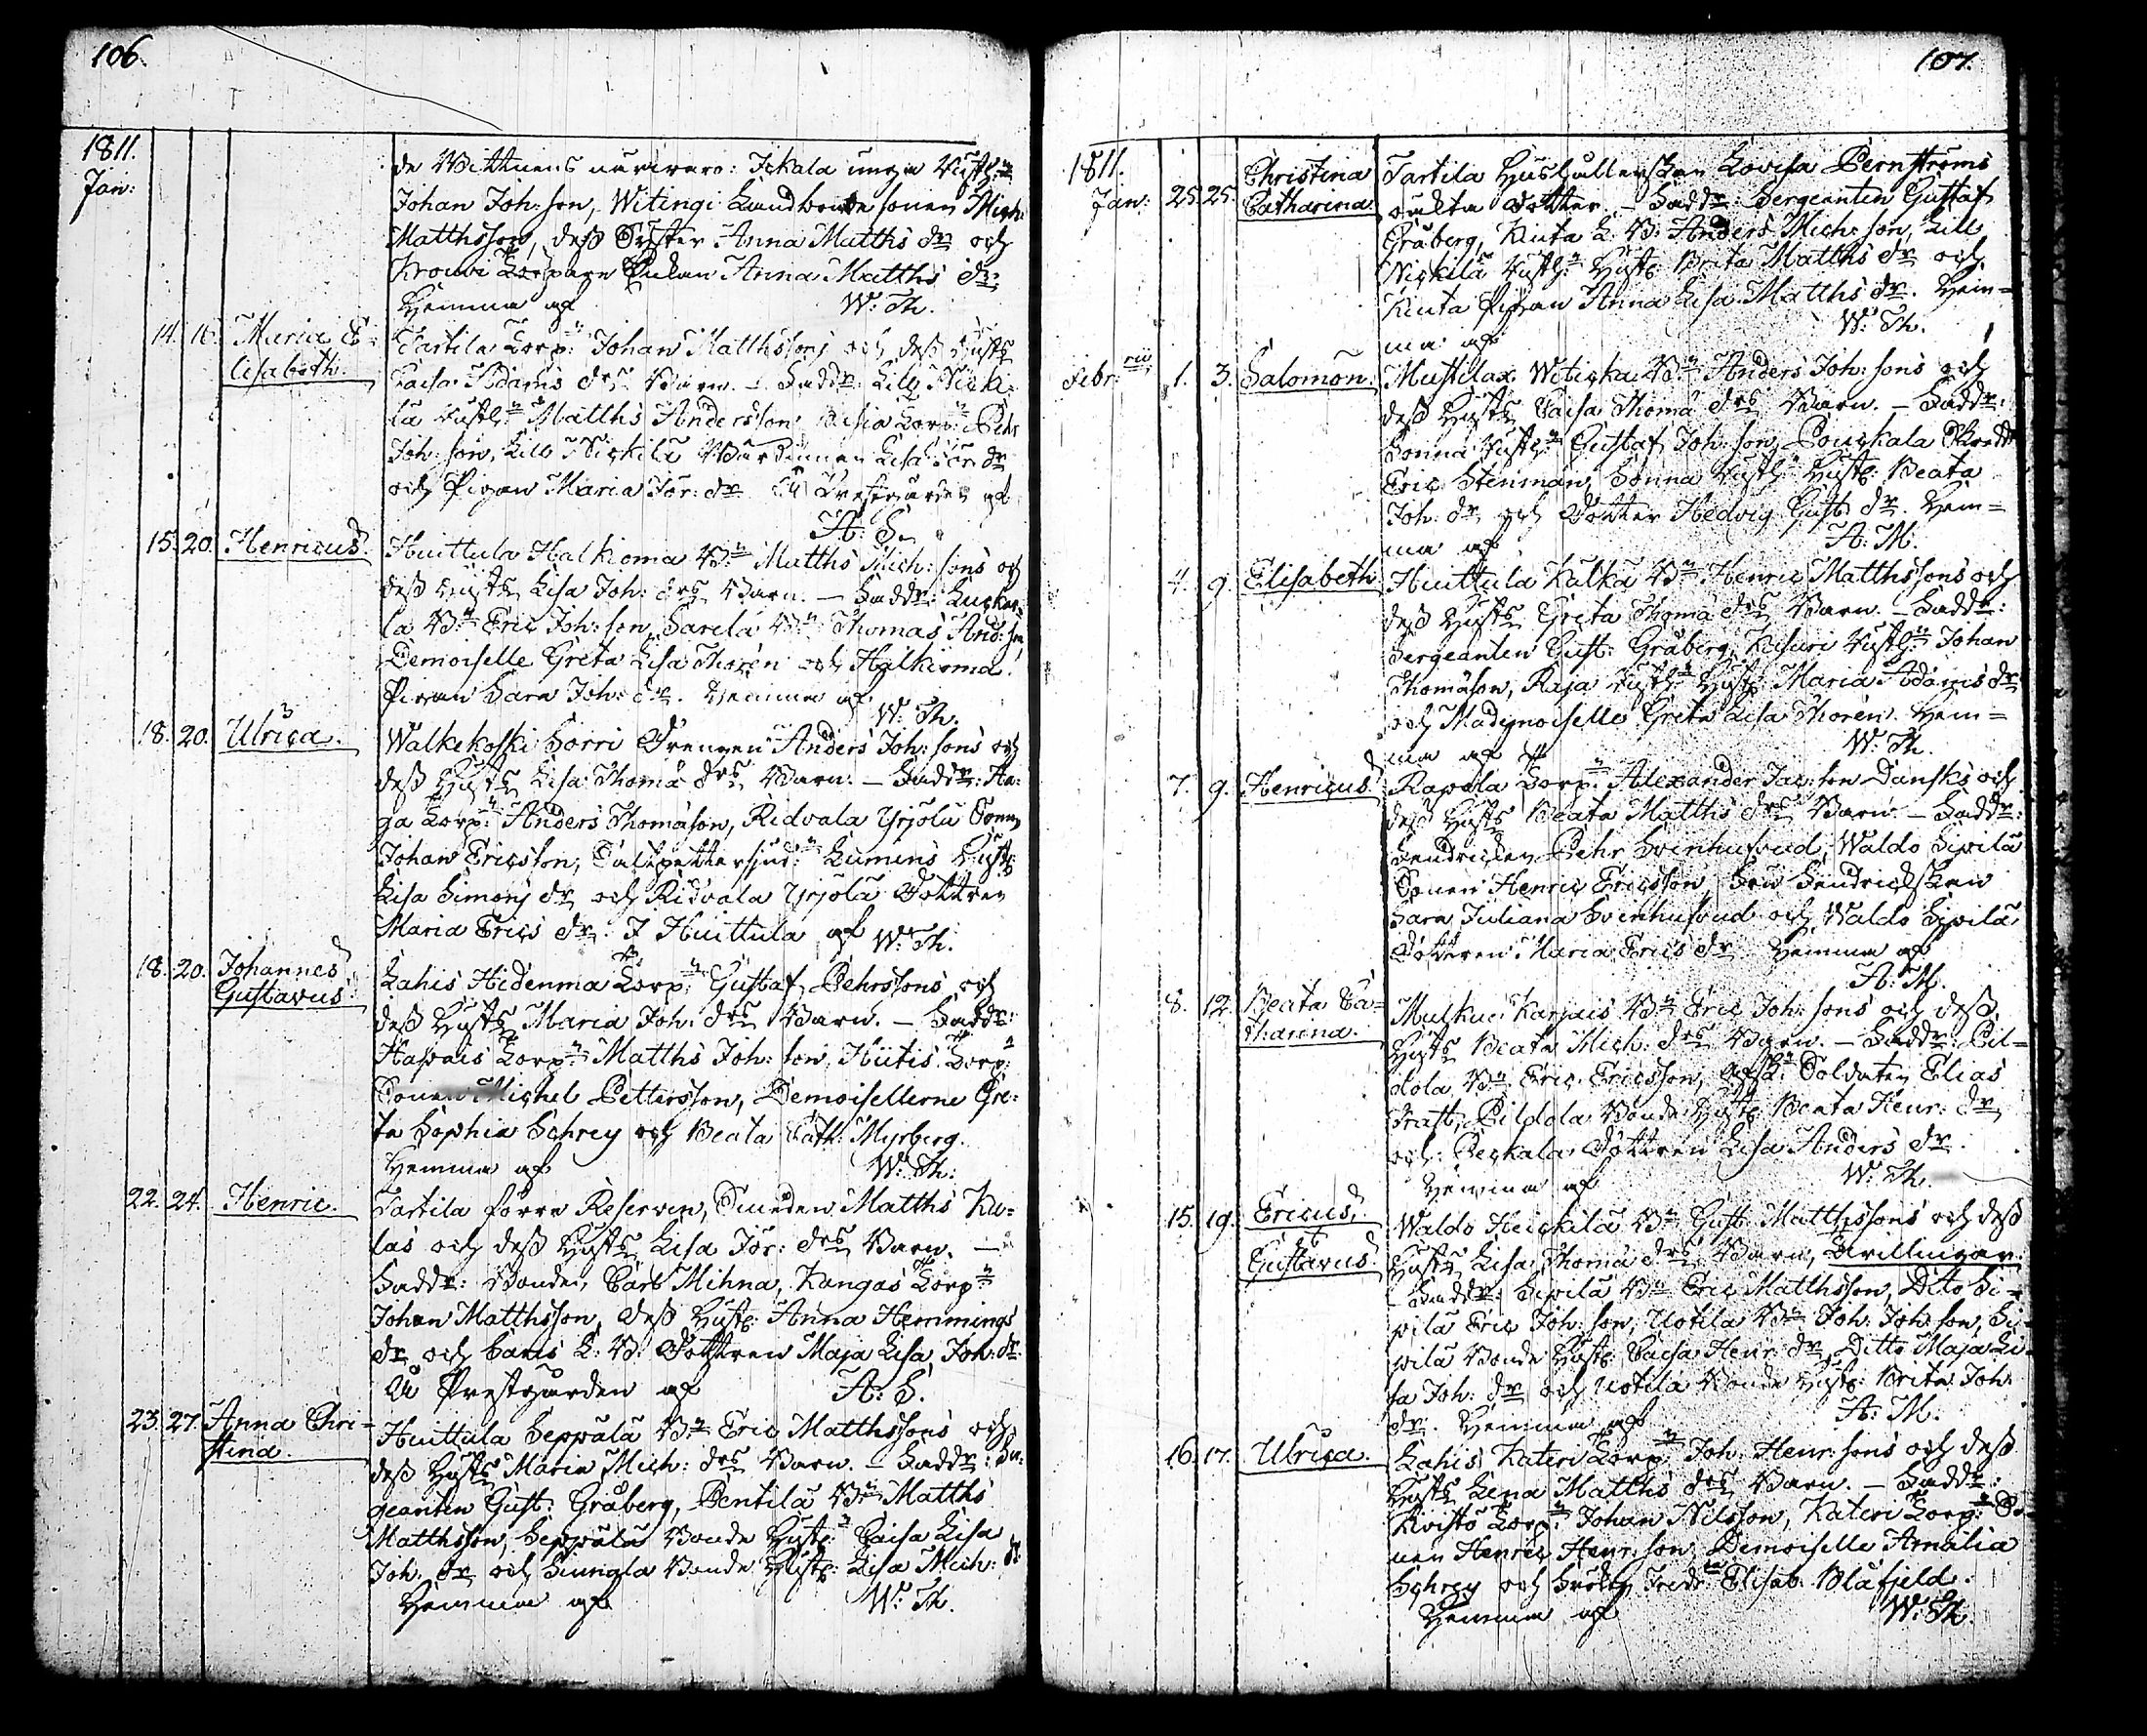 106.
1811.
Jan:
de Wittnens närvaro: Ickala unga
Johan Joh: son, Witingi Landbonde sonen Mich:
Matthsson, dess Syster Anna Matths dr och
Krouvi Enkan Anna Matths dr:
Hemma af W: Th.
14. 16. Maria E=
lisabeth.
Tartila Torp:n Johan Matthssons och dess Hustr
Caisa Adams drs Barn. – Faddr: Lill Nicki-
lä Matths Andersson, Torp:n Pehr
Joh: son, Lill Nickilä Wärdinnan Lisa Jör: dr
och Pigan Maria Jör: dr. Å Prestgården af
A: S.
15. 20. Henricus.
Huittula Halkioma B:n Matths Mich: sons och
dess Hustr Lisa Joh: drs Barn. – Faddr:
la B:n Eric Joh: son, Sarela B:n Thomas And: son,
Demoiselle Greta Lisa Thorén och Halkioma
Pigan Sara Joh: dr. Hemma af
W: Th.
18. 20. Ulrica.
Walkekoski Sorri Drengen Anders Joh: sons och
dess Hustr Lisa Thomä drs Barn. – Faddr: Ha-
ga Torp:n Anders Thomäson, Ridvala Yrjölä Sonen
Johan Ericsson, Saltpettersjud:n Lumens Hustr:
Lisa Simons dr och Ridvala Yrjölä Dottren
Maria Erics dr. I Huittula af W: Th.
18. 20. Johannes
Gustavus.
Lahis Hidenma Torp:n Gustaf Pehrssons och
dess Hustr Maria Joh: drs Barn. – Faddr:
Torp:n Matths Joh: son, Hiitis Torp:
Sonen Michel Pettersson, Demoisellerne Gre-
ta Sophia Schrey och Beata Cath: Myrberg.
Hemma af W: Th:
22. 24. Henric.
Tartila förra Reserven, Smeden Matths Ka-
las och dess Hustr Lisa Jör: drs Barn. –
Faddr: Bonden, Carls Mihna, Kangas Torp:n
Johan Matthsson, dess Hustr: Anna Hemmings
dr och Caris L: B: Dottren Maja Lisa Joh: dr
Å Prestgården af A: S.
23. 27. Anna Chri=
stina.
Huittula Seppälä B:n Eric Matthssons och
dess Hustr Maria Mich: drs Barn. – Faddr: Ser-
geanten Gust: Gråberg, Pentilä B:n Matths
Matthsson, Seppälä Bonde Hustr: Caisa Lisa
Joh: dr och Bonde Hustr: Lisa Mich: dr
Hemma af W: Th.
107.
1811.
Jan: 25. 25. Christina
Catharina.
Tartila Hushållerskan Lovisa Pernströms
oäkta dotter. – Faddr: Sergeanten Gustaf
Gråberg, Knuta L: B: Anders Mich: son, Lill
Nickilä Hustr: Brita Matths dr och
Knuta Pigan Anna Lisa Matths dr. Hem=
ma af W: Th.
Febr: 1. 3. Salomon.
Mustila Witicka B:n Anders Joh: sons och
dess Hustr Caisa Thomä drs Barn. – Faddr:
Sonna Gustaf Joh: son, Pouckala Skredd:
Eric Stenman, Sonna Hustr: Beata
Joh: dr och Dotter Hedvig Gust: dr. Hem=
ma af A: M.
4. 9. Elisabeth
Huittula Kalka B:n Henric Matthssons och
dess Hustr Greta Thomä drs Barn. – Faddr:
Sergeanten Gust: Gråberg, Johan
Thomäson, Raja Hustr: Maria Adams dr
och Mademoiselle Greta Lisa Thorén. Hem=
ma af W: Th.
7. 9. Henricus.
Rapola Torp:n Alexander Jac: son Dansks och
dess Hustr Beata Matths drs Barn. – Faddr:
Fendricken Pehr Svinhufvud, Waldo Sipilä
Sonen Henric Ericsson, Fru Fendrickskan
Sara Juliana Svinhufvud och Waldo Sipilä
Dottren Maria Erics dr. Hemma af
A: M.
8. 12. Beata Ca=
tharina.
Karjais B:n Eric Joh: sons och dess
Hustr Beata Mich: drs Barn. – Faddr: Pil=
dola B:n Eric Ericsson, Afsk: Soldaten Elias
Pratt, Pildola Bonde Hustr: Beata Henr: dr
och Peckala Dottren Lisa Anders dr.
Hemma af W: Th.
15. 19. Ericus,
&
Gustavus.
Waldo Heickilä B:n Gust: Matthssons och dess
Hustr Lisa Thomä drs Barn, Tvillingar.
– Faddr: Sipilä B:n Eric Matthsson, Dito Si=
pilä Eric Joh: son, Uotila B:n Joh: Joh: son, Si=
pilä Bonde Hustr: Caisa Henr: dr, Ditto Maja Li=
sa Joh: dr och Uotila Bonde Hustr: Brita Joh:
dr. Hemma af A: M.
16. 17. Ulrica.
Lahis Kateri Torp:n Joh: Henr: sons och dess
Hustr Lena Matths drs Barn. – Faddr:
Kivistö Torp:n Johan Nilsson, Kateri Torp:n So-
nen Henric Henr: son, Demoiselle Amalia
Schrey och Fredr: Elisab: Blåfjeld.
Hemma af W: Th.